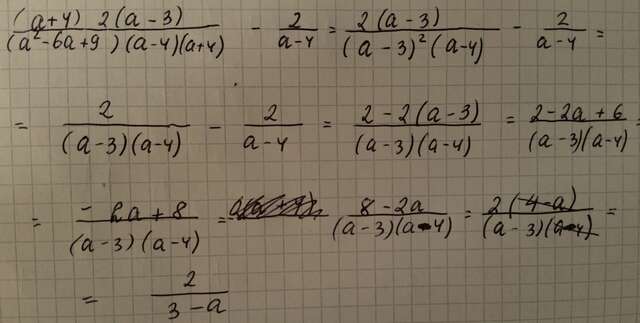 (a+4) 2(a-3) / (a²-6a+9)(a-4)(a+4) - 2 / a-4 = 2(a-3) / (a-3)²(a-4) - 2 / a-4 =
= 2 / (a-3)(a-4) - 2 / a-4 = 2-2(a-3) / (a-3)(a-4) = 2-2a+6 / (a-3)(a-4) =
= -2a+8 / (a-3)(a-4) = 8-2a / (a-3)(a-4) = 2(4-a) / (a-3)(a-4) =
= 2 / 3-a